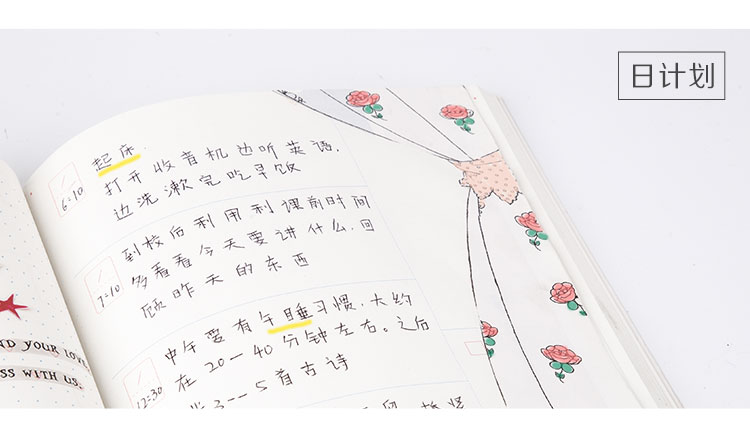 日计划
起床.
6:10
打开收音机边听英语.
边洗漱完吃早饭
到校后利用利课前时间
7:10
多看看今天要讲什么,回
顾昨天的东西
中午要有午睡习惯.大约
12:30
在20—40分钟左右。之后
3——5首古诗
ND YOUR LOVE
SS WITH US.